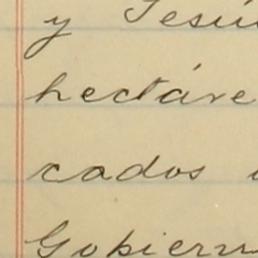 y Jesú
hectáre
cados
Gobiern